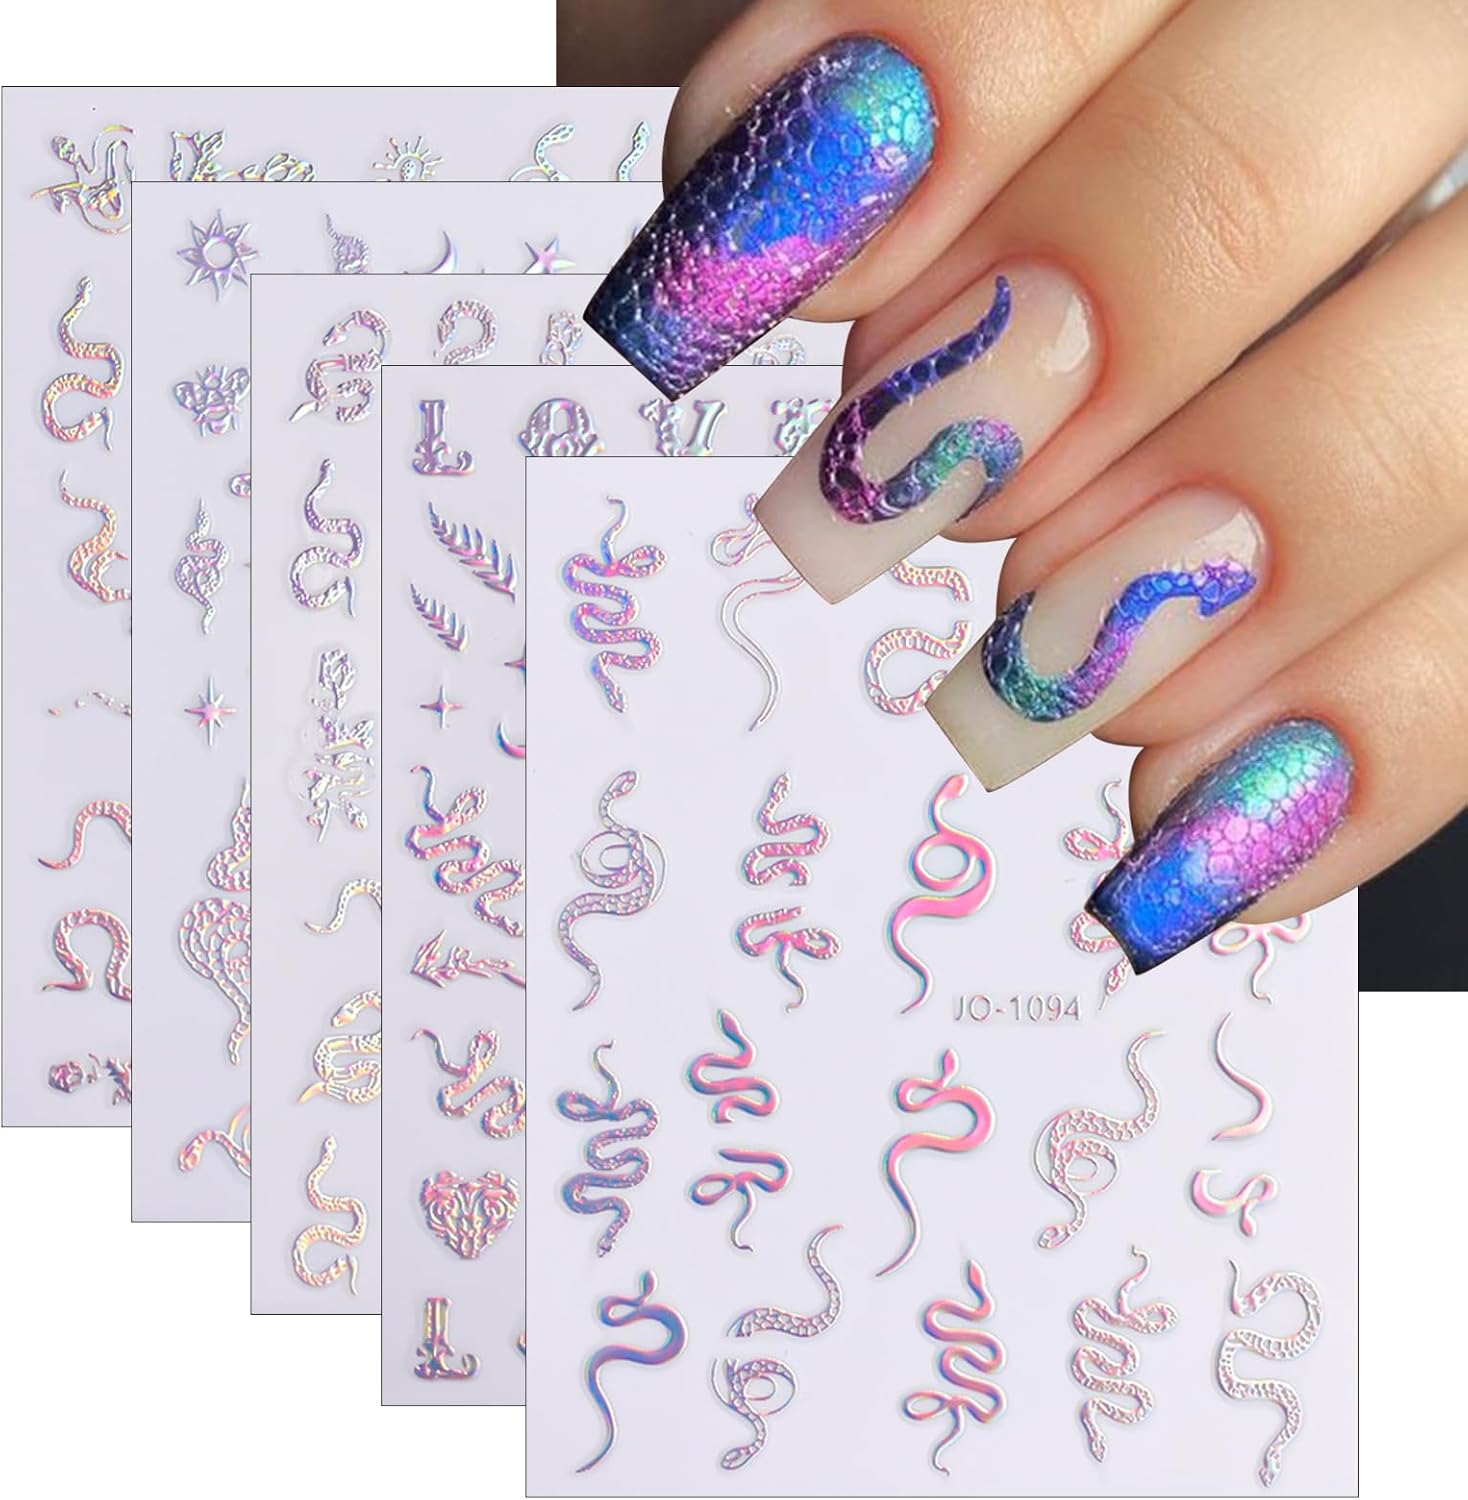 L O V
JO-1094
L